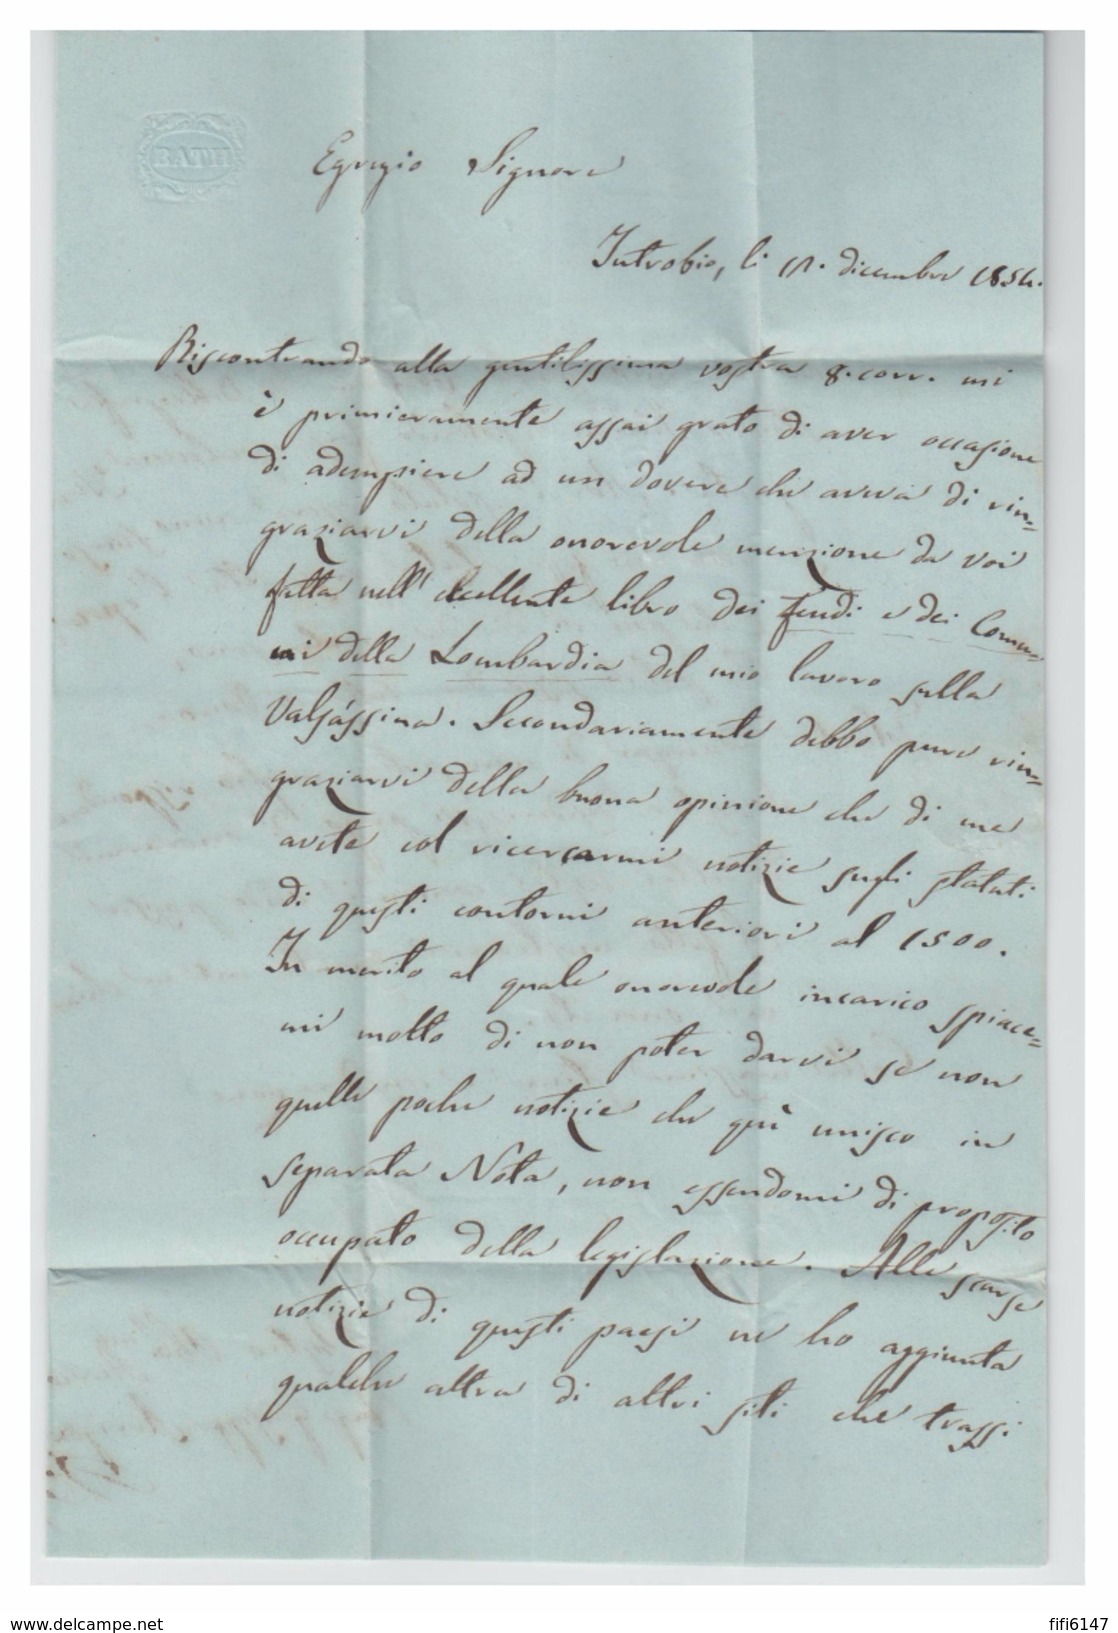 BATH
Egregio Signore
Introbio, li 11. dicembre 1854.
Riscontrando alla gentilissima vostra 8. corr. mi
è primieramente assai grato di aver occasione
di adempiere ad un dovere che aveva di rin=
graziarvi della onorevole menzione da voi
fatta nell' eccellente libro dei Feudi e dei Comu=
ni della Lombardia del mio lavoro sulla
Valsássina. Secondariamente debbo pure rin=
graziarvi della buona opinione che di me
avete col ricercarmi notizie sugli statuti
di questi contorni anteriori al 1500.
In merito al quale onorevole incarico spiace=
mi molto di non poter darvi se non
quelle poche notizie che quì unisco in
separata Nota, non essendomi di proposito
occupato della legislazione. Alle scarse
notizie di questi paesi ne ho aggiunta
qualche altra di altri siti che trassi
www.delcampe.net
fifi6147